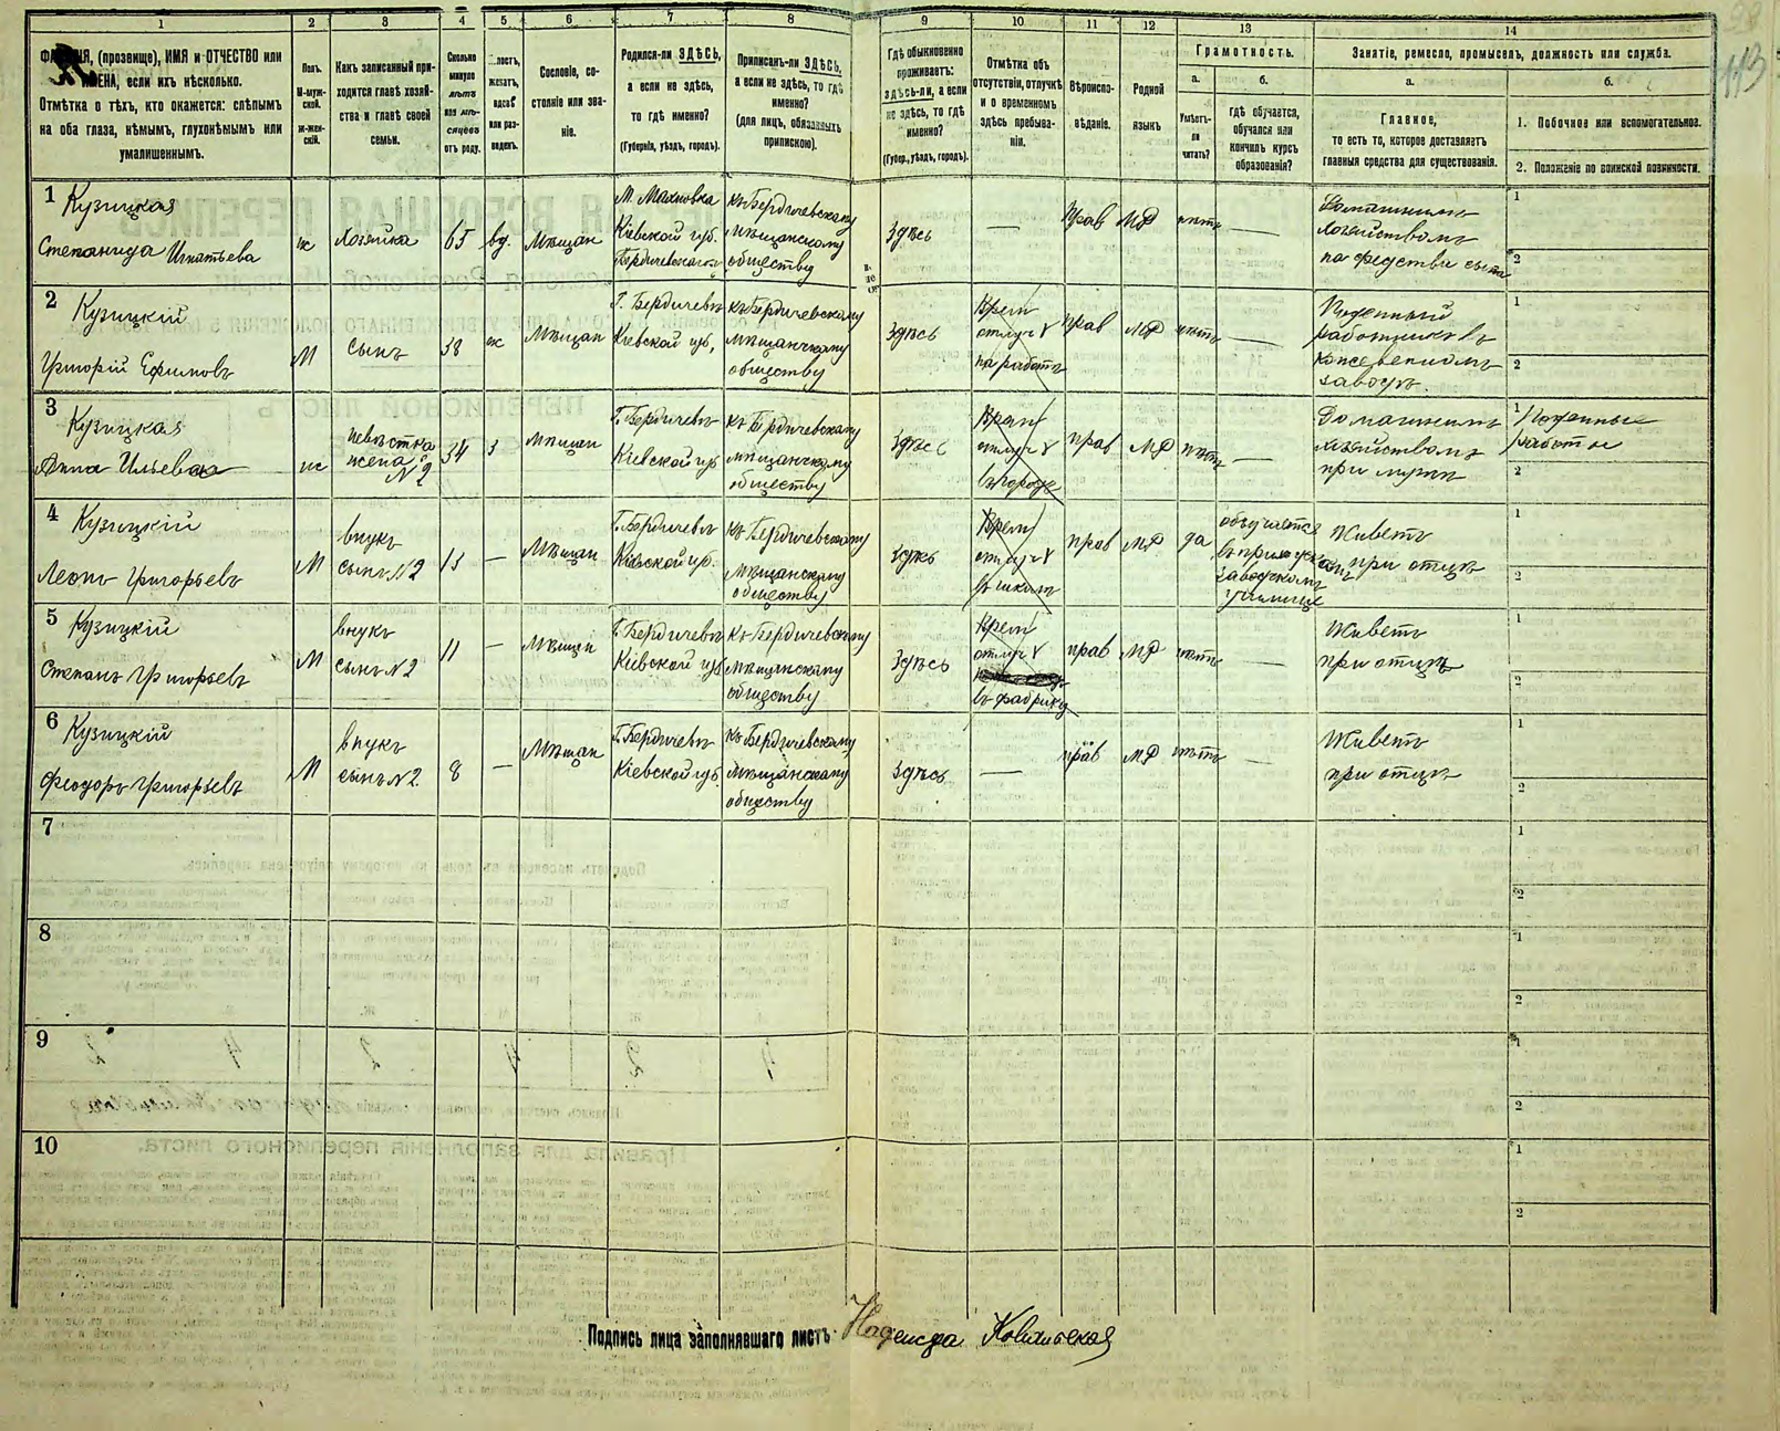 1 2 3 4 5 6 7 8 9 10 11 12 13 14
ФАМИЛІЯ, (прозвище), ИМЯ и ОТЧЕСТВО или
ИМЕНА, если ихъ нѣсколько.
Отмѣтка о тѣхъ, кто окажется: слѣпымъ
на оба глаза, нѣмымъ, глухонѣмымъ или
умалишеннымъ.
Полъ.
М-муж-
ской.
ж-жен-
скій.
Какъ записанный при-
ходится главѣ хозяй-
ства и главѣ своей
семьи.
Сколько
минуло
лѣтъ
или мѣ-
сяцевъ
отъ роду.
или раз-
веденъ.
Сословіе, со-
стояніе или зва-
ніе.
Родился-ли ЗДѢСЬ,
а если не здѣсь,
то гдѣ именно?
(Губернія, уѣздъ, городъ).
Приписанъ-ли ЗДѢСЬ,
а если не здѣсь, то гдѣ
именно?
(для лицъ, обязанныхъ
припискою).
Гдѣ обыкновенно
проживаетъ:
здѣсь-ли, а если
не здѣсь, то гдѣ
именно?
(Губер., уѣздъ, городъ).
Отмѣтка объ
отсутствіи, отлучкѣ
и о временномъ
здѣсь пребыва-
ніи.
Вѣроиспо-
вѣданіе.
Родной
языкъ
Грамотность.
а.
Умѣетъ-
ли
читать?
б.
гдѣ обучается,
обучался или
кончилъ курсъ
образованія?
Занятіе, ремесло, промыселъ, должность или служба.
а.
Главное,
то есть то, которое доставляетъ
главныя средства для существованія.
б.
1. Побочное или вспомогательное.
2. Положеніе по воинской повинности.
113
1 Кузицкая
Степанида Игнатьева
ж
хозяйка
65
вд.
Мѣщан
М. Махновка
Кіевской губ.
Бердичевскаго у
къ Бердичевскому
мѣщанскому
обществу
Здѣсь
—
Прав
МР
нѣтъ
—
Домашнимъ
хозяйствомъ
на средства сына
1
2
2 Кузицкій
Григорій Ефимовъ
М
сынъ
38
ж
Мѣщан
Г. Бердичевъ
Кіевской губ,
къ Бердичевскому
мѣщанскому
обществу
Здѣсь
Врем
отлуч
на работѣ
прав
МР
нѣтъ
—
Поденный
работникъ въ
кожевенномъ
заводѣ.
1
2
3 Кузицкая
Анна Ильева
ж
невѣстка
жена
N 2
34
з
Мѣщан
Г. Бердичевъ
Кіевской губ
къ Бердичевскому
мѣщанскому
обществу
Здѣсь
Врем
отлуч
въ городѣ
прав
МР
нѣтъ
—
Домашнимъ
хозяйствомъ
при мужѣ
1 Поденныя
работы
2
4 Кузицкій
Леонъ Григорьевъ
М
внукъ
сынъ N 2
13
—
Мѣщан
Г. Бердичевъ
Кіевской губ.
къ Бердичевскому
мѣщанскому
обществу
Здѣсь
Врем
отлуч
въ школѣ
прав
МР
да
обучается
въ приходскомъ
заводскомъ
училище
Живетъ
при отцѣ
1
2
5 Кузицкій
Степанъ Григорьевъ
М
внукъ
сынъ N 2
11
—
Мѣщан
Г. Бердичевъ
Кіевской губ
къ Бердичевскому
мѣщанскому
обществу
Здѣсь
Врем
отлуч
въ фабрику
прав
МР
нѣтъ
—
Живетъ
при отцѣ
1
2
6 Кузицкій
Феодоръ Григорьевъ
М
внукъ
сынъ N 2.
8
—
Мѣщан
Г. Бердичевъ
Кіевской губ.
къ Бердичевскому
мѣщанскому
обществу
Здѣсь
—
прав
МР
нѣтъ
—
Живетъ
при отцѣ
1
2
7
1
2
8
1
2
9
1
2
10
1
2
Подпись лица заполнявшаго листъ Надежда